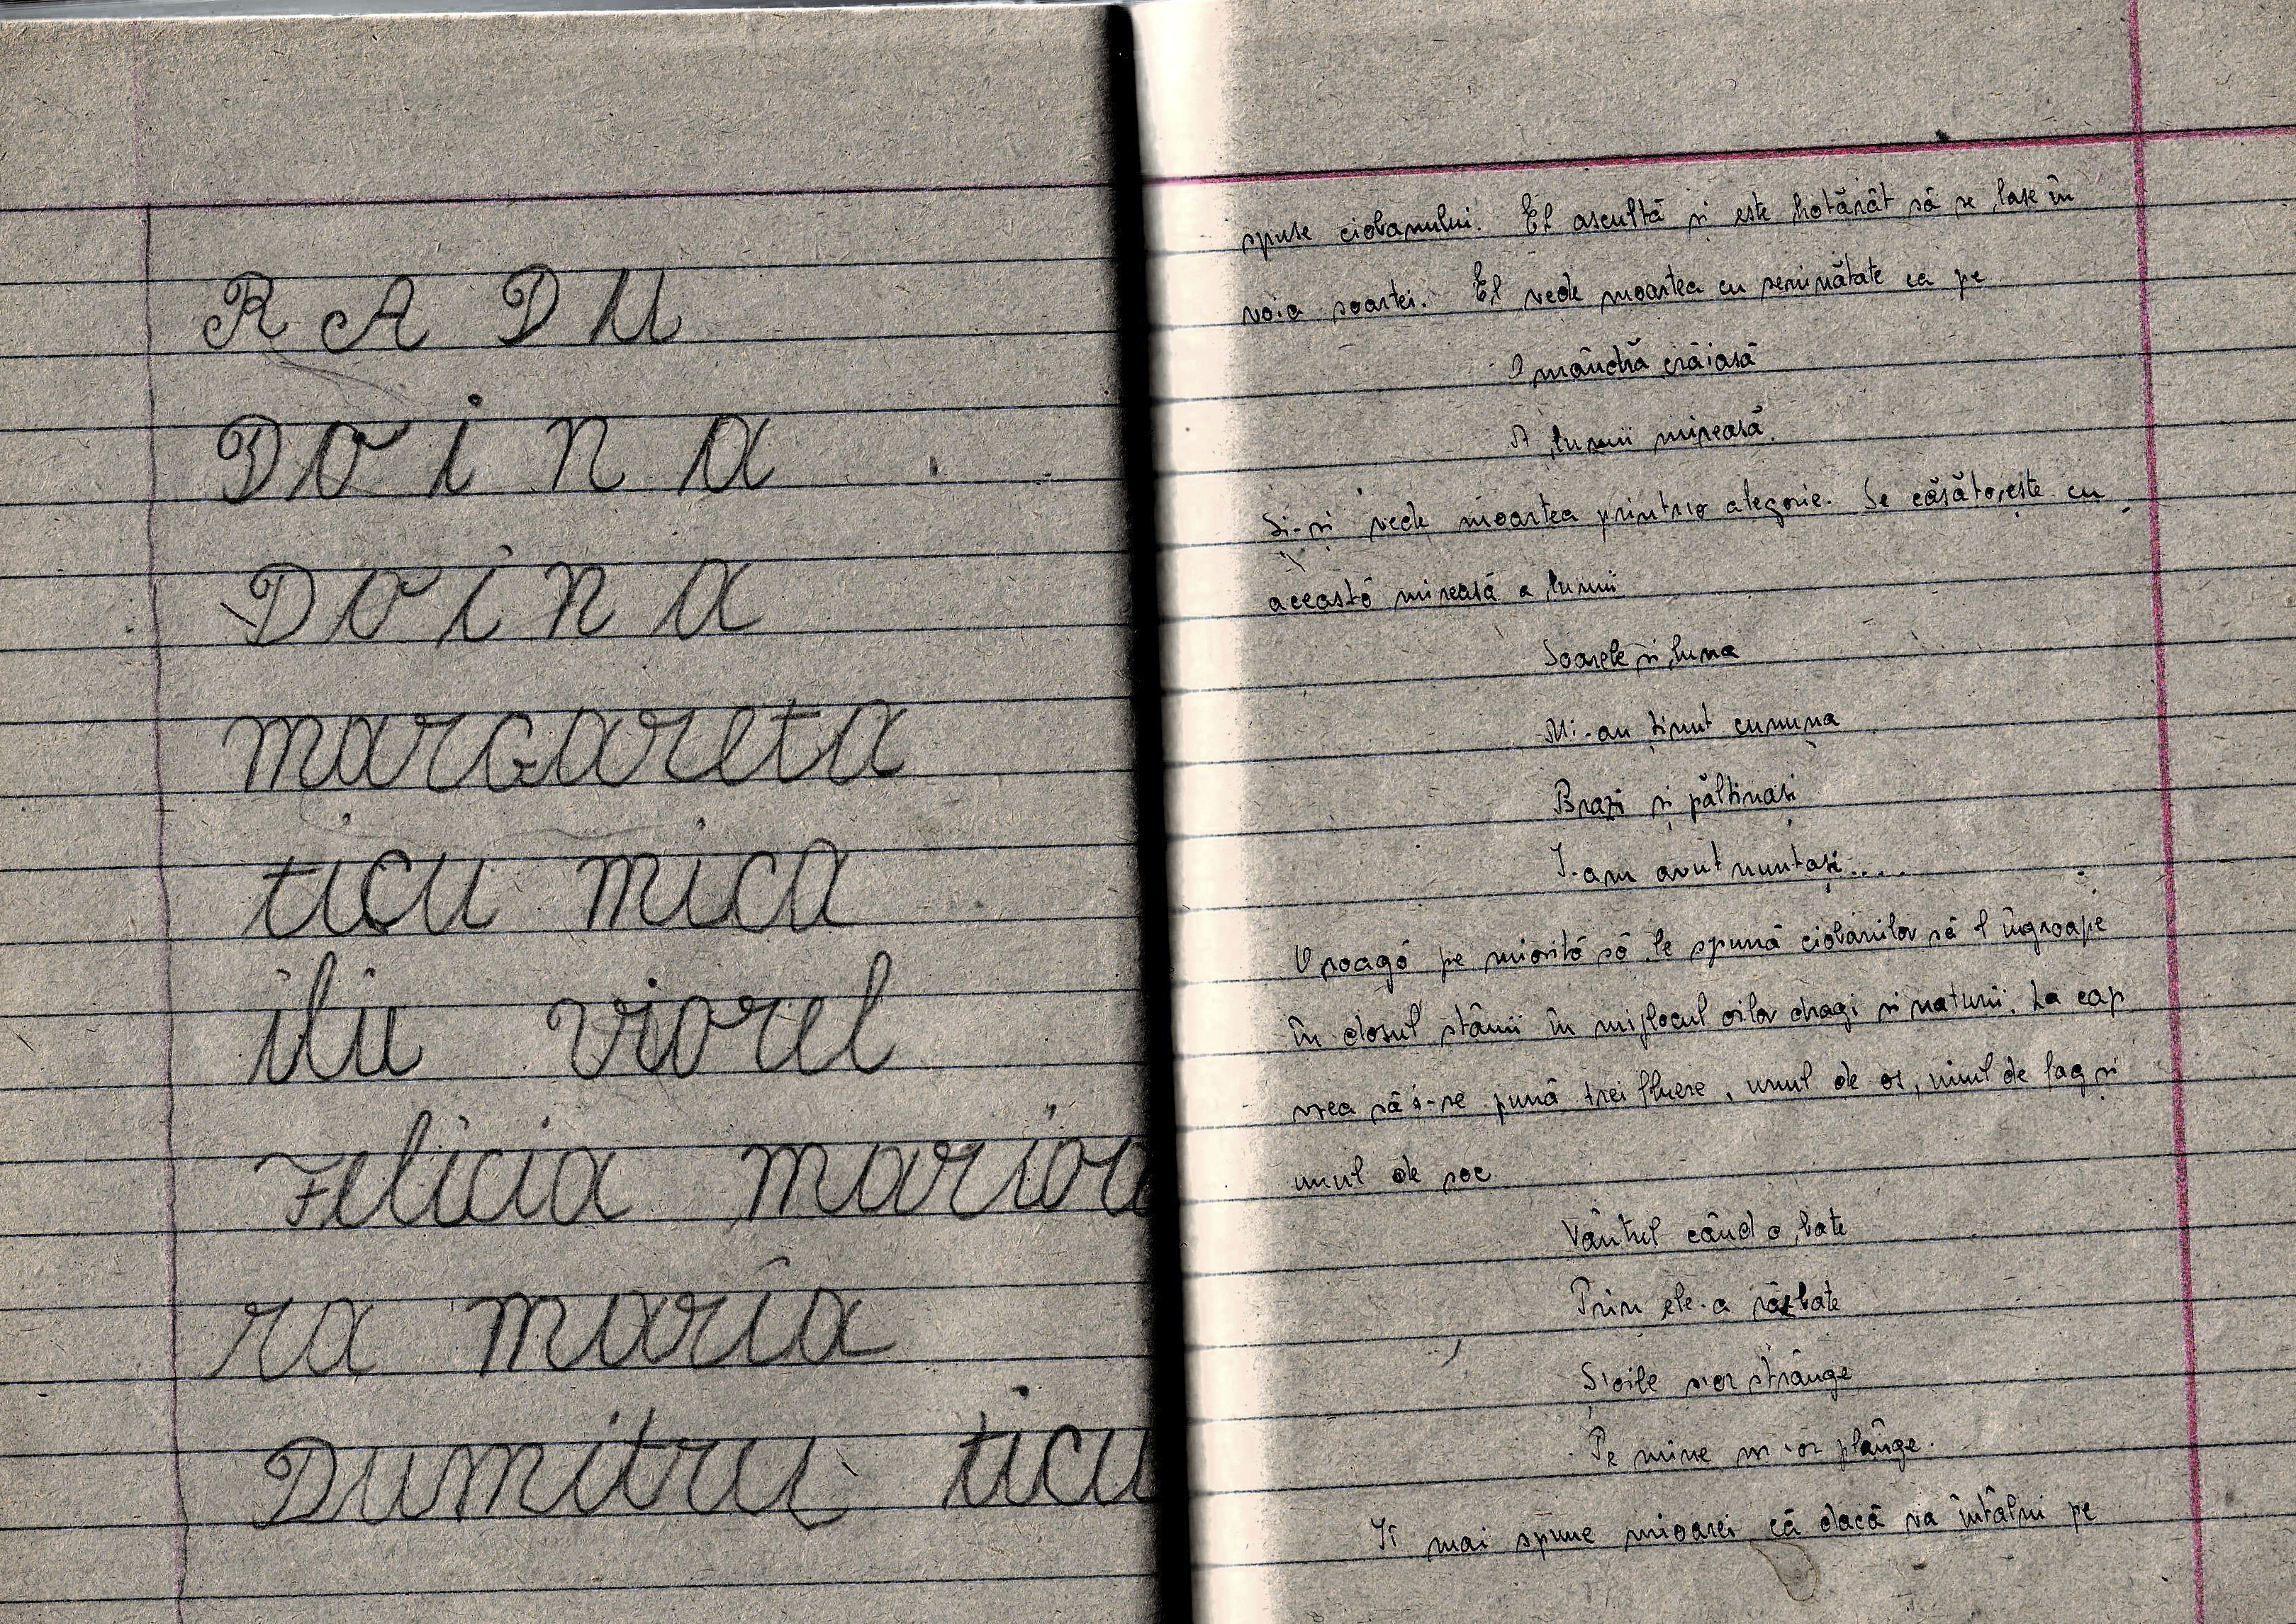 R A D U
D o i n a
D o i n a
marGareta
ticu mica
iliu viorel
Felicia marioa
ra maria
Dumitru ticu
spuse ciobanului. El ascultă și este hotărât să se lase în
voia soartei. El vede moartea cu seninătate ca pe
O mândră crăiasă
A lumii mireasă.
Își vede moartea printr-o alegorie. Se căsătorește cu
această mireasă a lumii
Soarele și luna
Mi-au ținut cununa
Brazi și păltinași
I-am avut nuntași....
O roagă pe mioriță să le spună ciobanilor să-l îngroape
în dosul stânii în mijlocul oilor dragi și naturii. La cap
vrea să i-se pună trei fluere, unul de os, unul de fag și
unul de soc
Vântul când o bate
Prin ele-a răsbate
Ș'oile s'or strânge
Pe mine m'or plânge.
Îi mai spune mioarei că dacă va întâlni pe